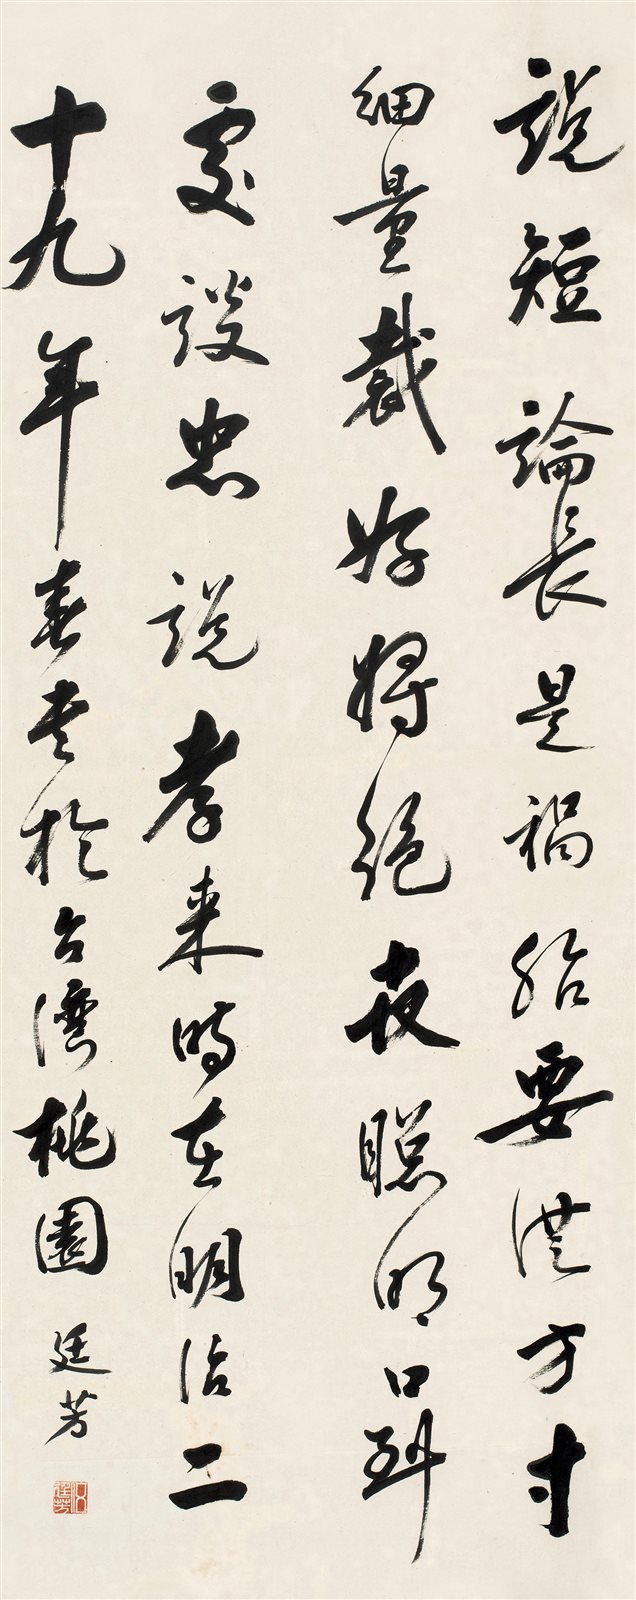 說短論長是禍胎要從方寸
細量裁好將絕聰明口到
處談忠說孝来時在明治二
十九年春書於台灣桃園 廷芳